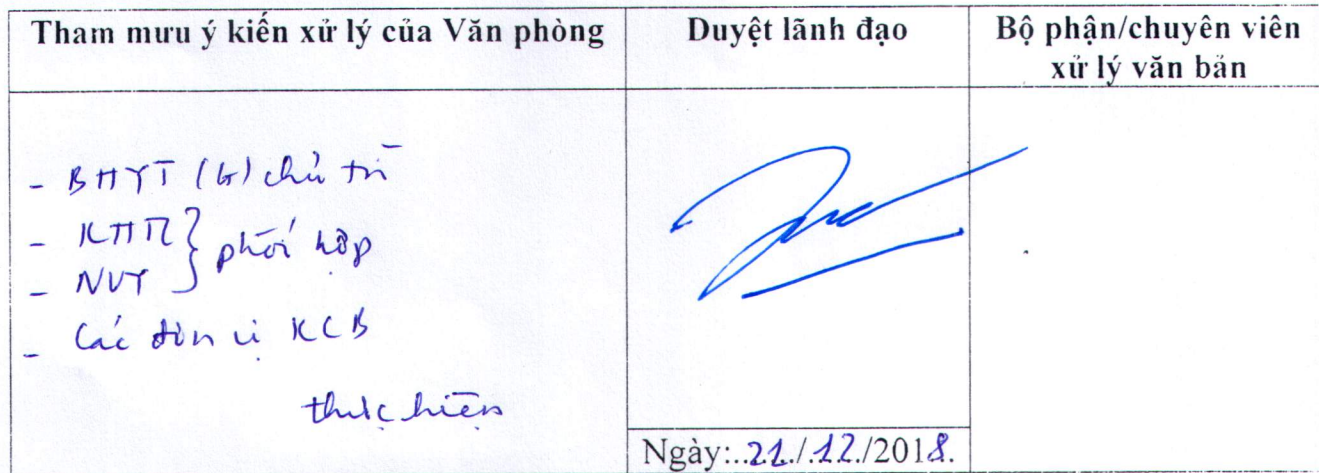 Tham mưu ý kiến xử lý của Văn phòng
Duyệt lãnh đạo
Bộ phận/chuyên viên
xử lý văn bản
- BHYT (G) chủ trì
- KHTC } phối hợp
- NVY
- Các đơn vị KCB
thực hiện
Ngày:..21./.12./2018.